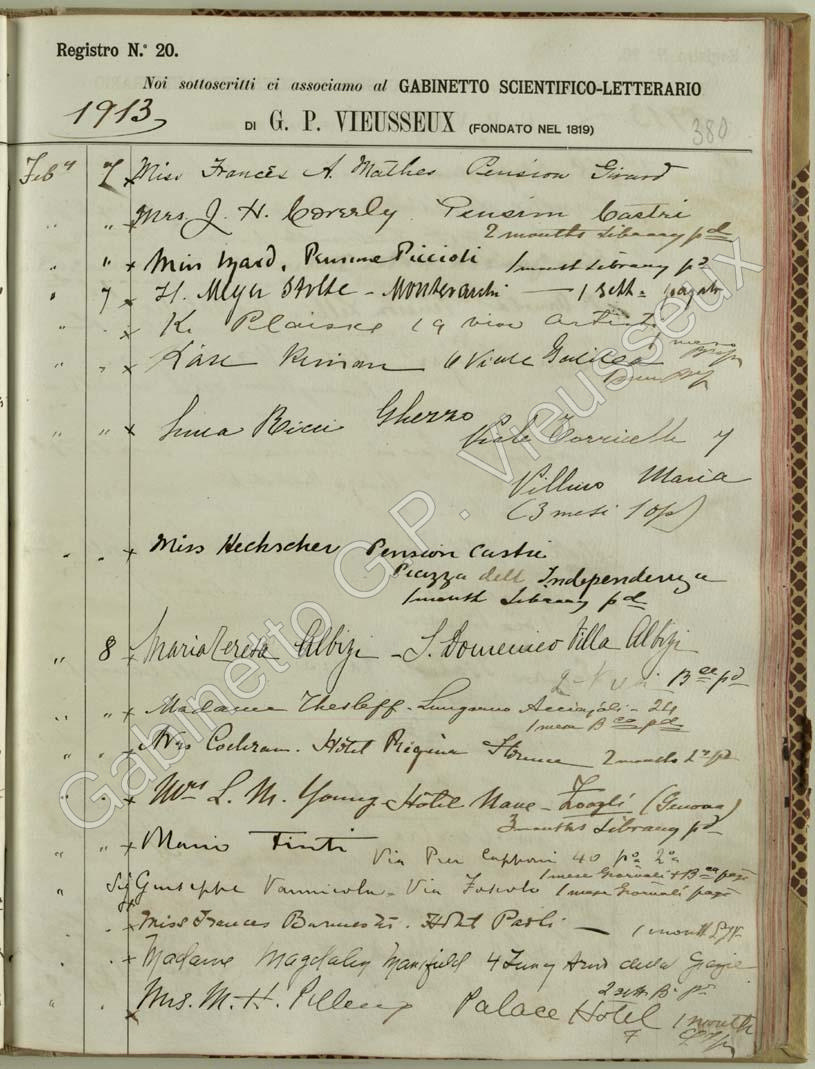 Registro N.º 20.
Noi sottoscritti ci associamo al GABINETTO SCIENTIFICO-LETTERARIO
1913
DI G. P. VIEUSSEUX (FONDATO NEL 1819)
380
Feb y 7 x Miss Frances A. Mathes Pension Girard
" " x Mrs. J. H. Coverly Pension Castri
2 months Library pd
" " x Miss Izard, Pensione Piccioli 1 month Library pd
" 7 x H. Meyer Stolte - Montevarchi — 1 sett.
" " x K. 19 viale
" " x Viale Galileo
" " x Ricci Ghezzo
Viale Torricelli 7
Villino Maria
(3 mesi
" " x Miss Heckscher Pension Castri
Piazza dell Independenza
1 month Library pd
" 8 x Maria Teresa Albizi - S. Domenico Villa Albizi
Bca pd
" " x Madame Thesleff - Lungarno Acciajoli - 24
1 mese Bca pd
" " x Mrs Cochran. Hôtel Regina Florence 2 months
" " x Mrs L. M. Young - Hôtel Nave - Zoagli (Genova)
3 months Library pd
" " x Mario Tinti Via Pier Capponi 40 po 2o
1 mese Giornali + Bca pag
" Giuseppe Vannicola - Via Foscolo 1 mese Giornali pag
" " x Miss Frances Hôtel Paoli — 1 month
" " x Madame Magdaley Mansfield 4 Lung Arno della Grazie
" " x Mrs. M. H. Palace Hotel 1 month
Gabinetto G.P. Vieusseux